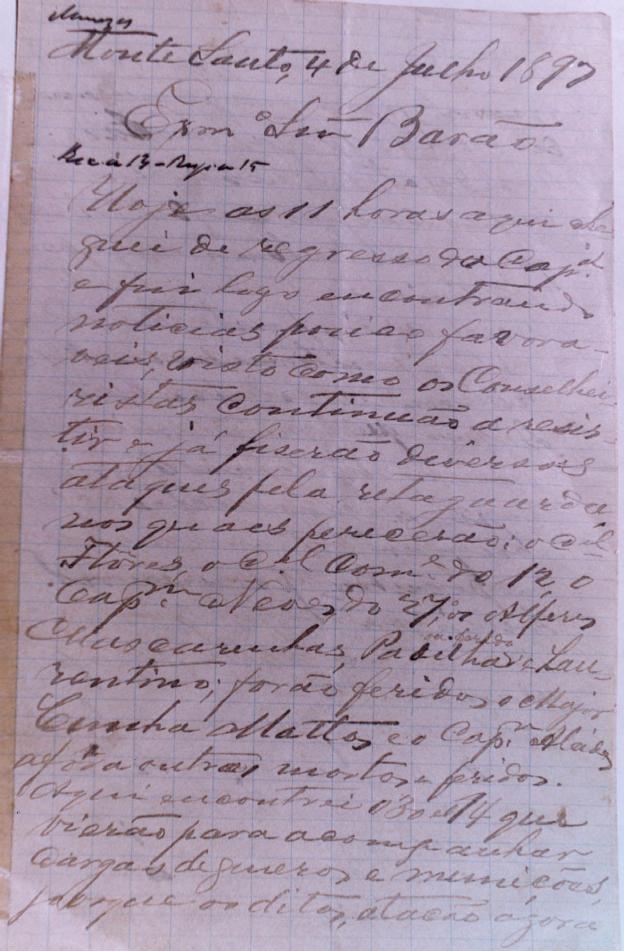 Menezes
Monte Santo, 4 de Julho 1897
Exmº Snr Barão
Rec. a 13 - Resp. a 15
Hoje as 11 horas aqui che
guei de regresso da Capal
e fui logo encontrando
noticias pouco favora-
veis, visto como os Conselhei
ristas continuão a resis-
tir e já fiserão diversos
ataques pela retaguarda
nos quaes perecerão: o Cel
Flores, o Cel Come do 12, o
Capm Neves do 27, os Alferes
Mascarenhas, Padilha e Lau-
ou ferido
rentino; forão feridos o Major
Cunha Mattos e o Capm Alcides
afóra outros mortos e feridos.
Aqui encontrei o 3º e 14 que
vierão para acompanhar
cargas de generos e munições,
porque os ditos, atacão agora